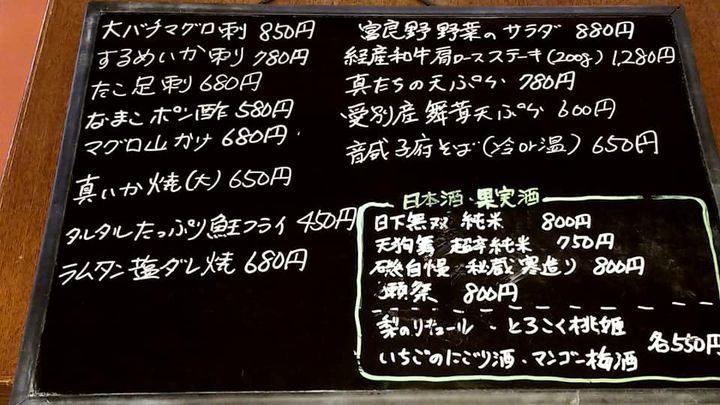 大バチマグロ刺 850円
するめいか刺り 780円
たこ足刺 680円
なまこポン酢 580円
マグロ山かけ 680円
真いか焼(大) 650円
タルタルたっぷり鮭フライ 450円
ラムタン塩ダレ焼 680円
富良野野菜のサラダ 880円
経産和牛肩ロースステーキ(200g) 1,280円
真たちの天ぷら 780円
愛別産舞茸天ぷら 600円
音威子府そば(冷or温) 650円
日本酒・果実酒
日下無双 純米 800円
天狗舞 超辛純米 750円
磯自慢 秘蔵寒造り 800円
獺祭 800円
梨のリキュール・とろこく桃姫
いちごのにごり酒・マンゴー梅酒
各550円